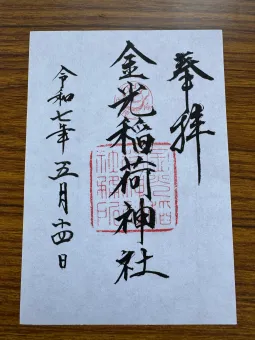 奉拝
金光稲荷神社
令和七年
五月十四日